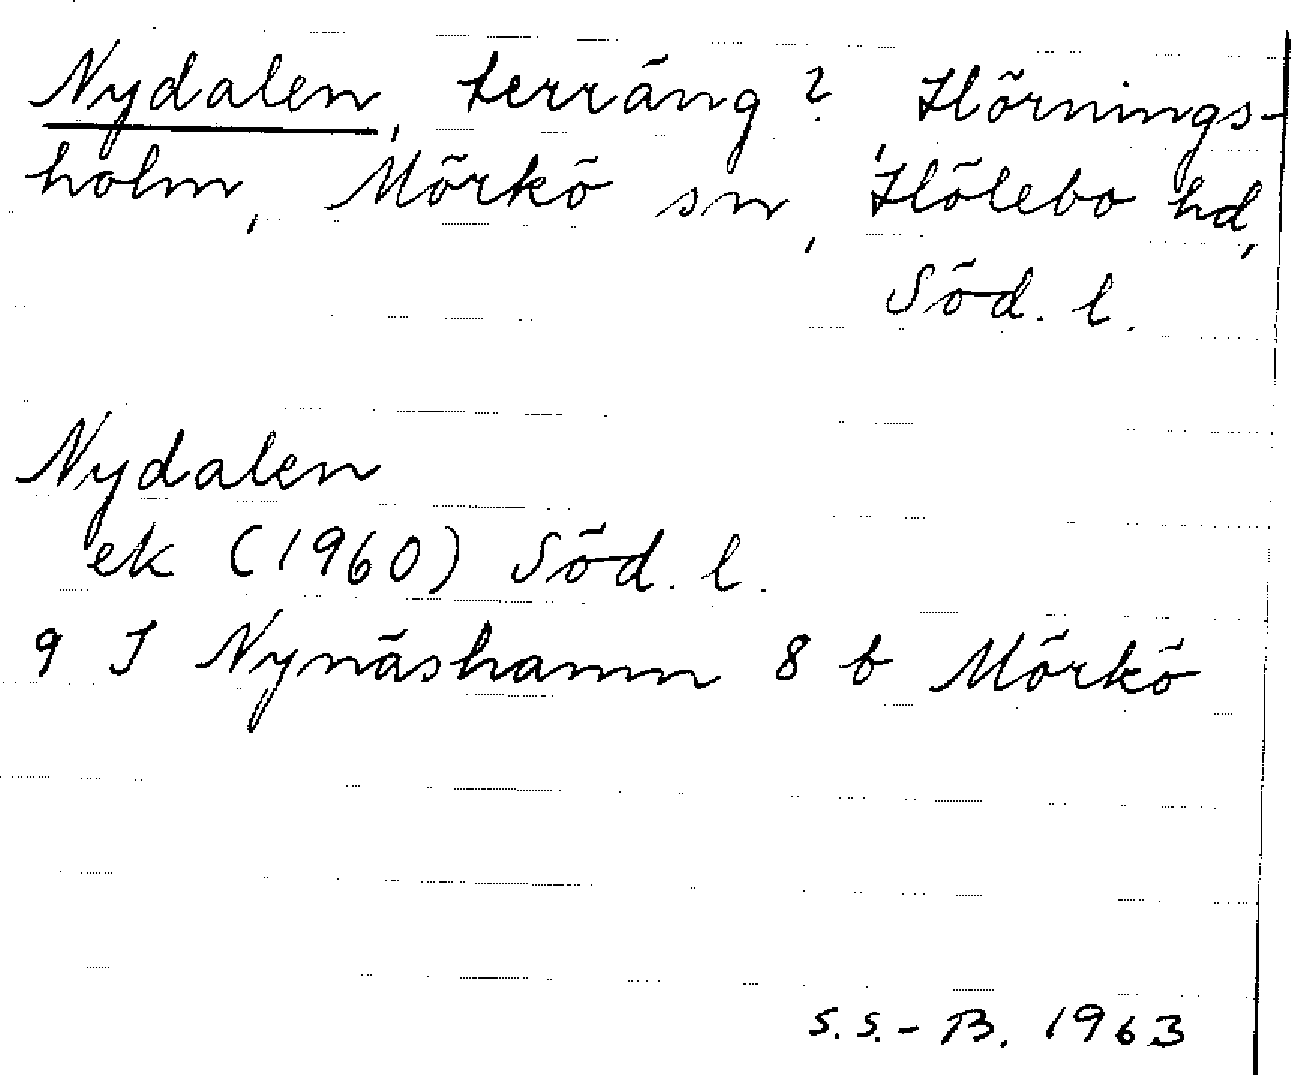 Nydalen, terräng? Hörnings-
holm, Mörkö sn, Hölebo hd,
Söd. l.
Nydalen
ek (1960) Söd. l.
9 I Nynäshamn 8 b Mörkö
S.S.-B. 1963